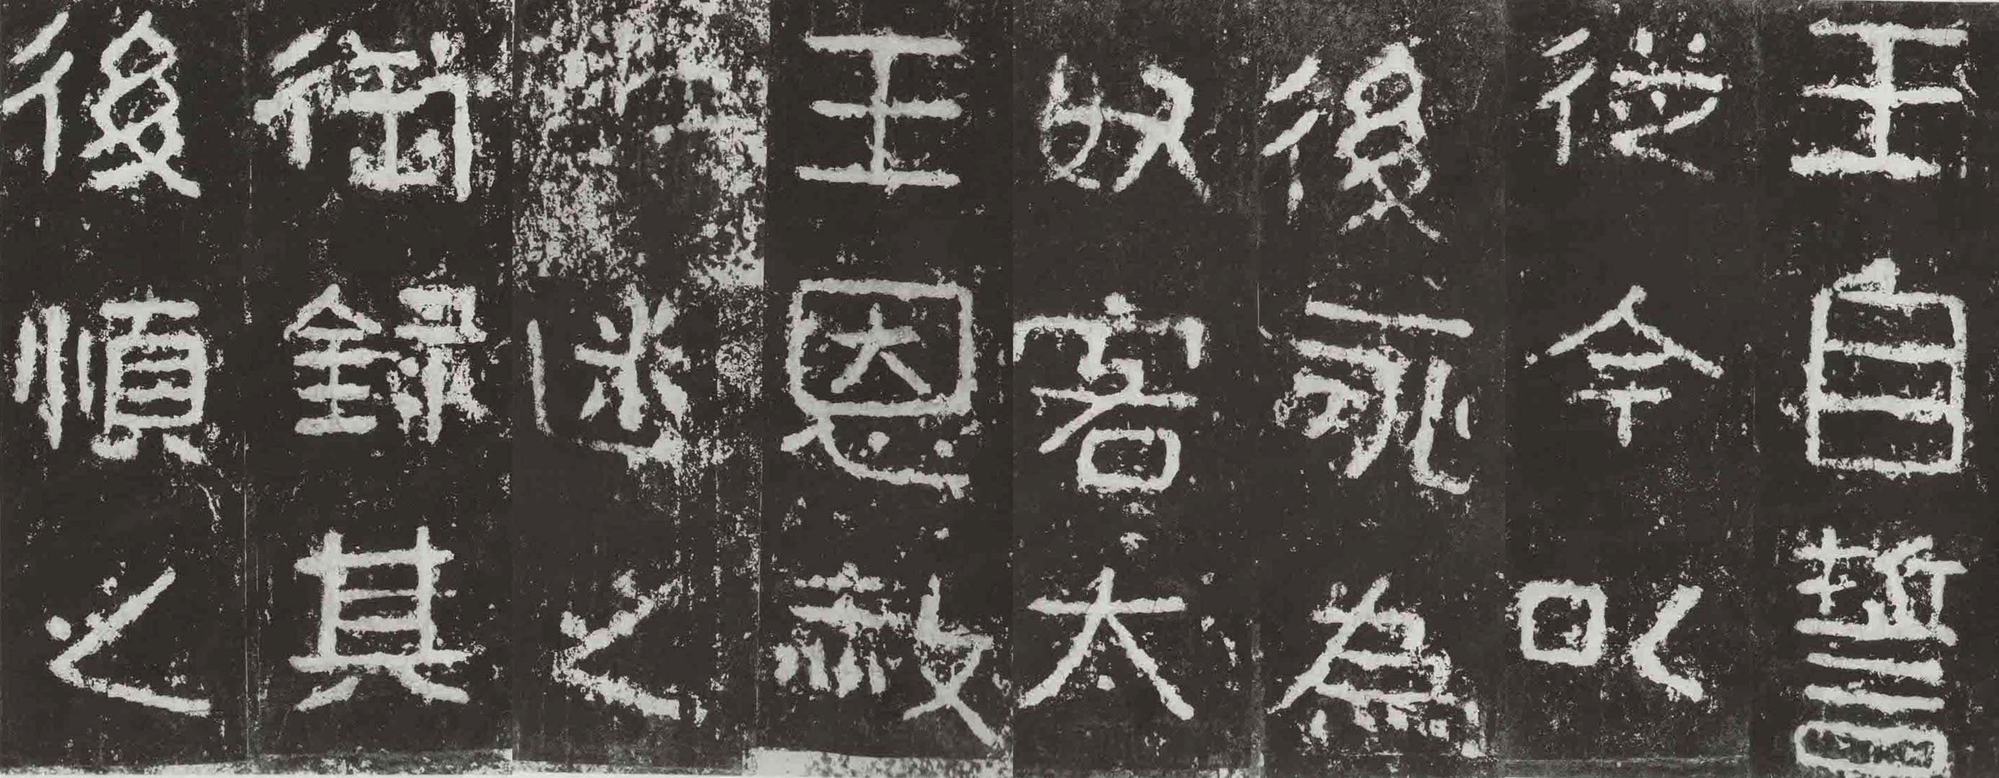 王自誓
從今㕥
後永為
奴客太
王恩赦
迷之
御錄其
後順之